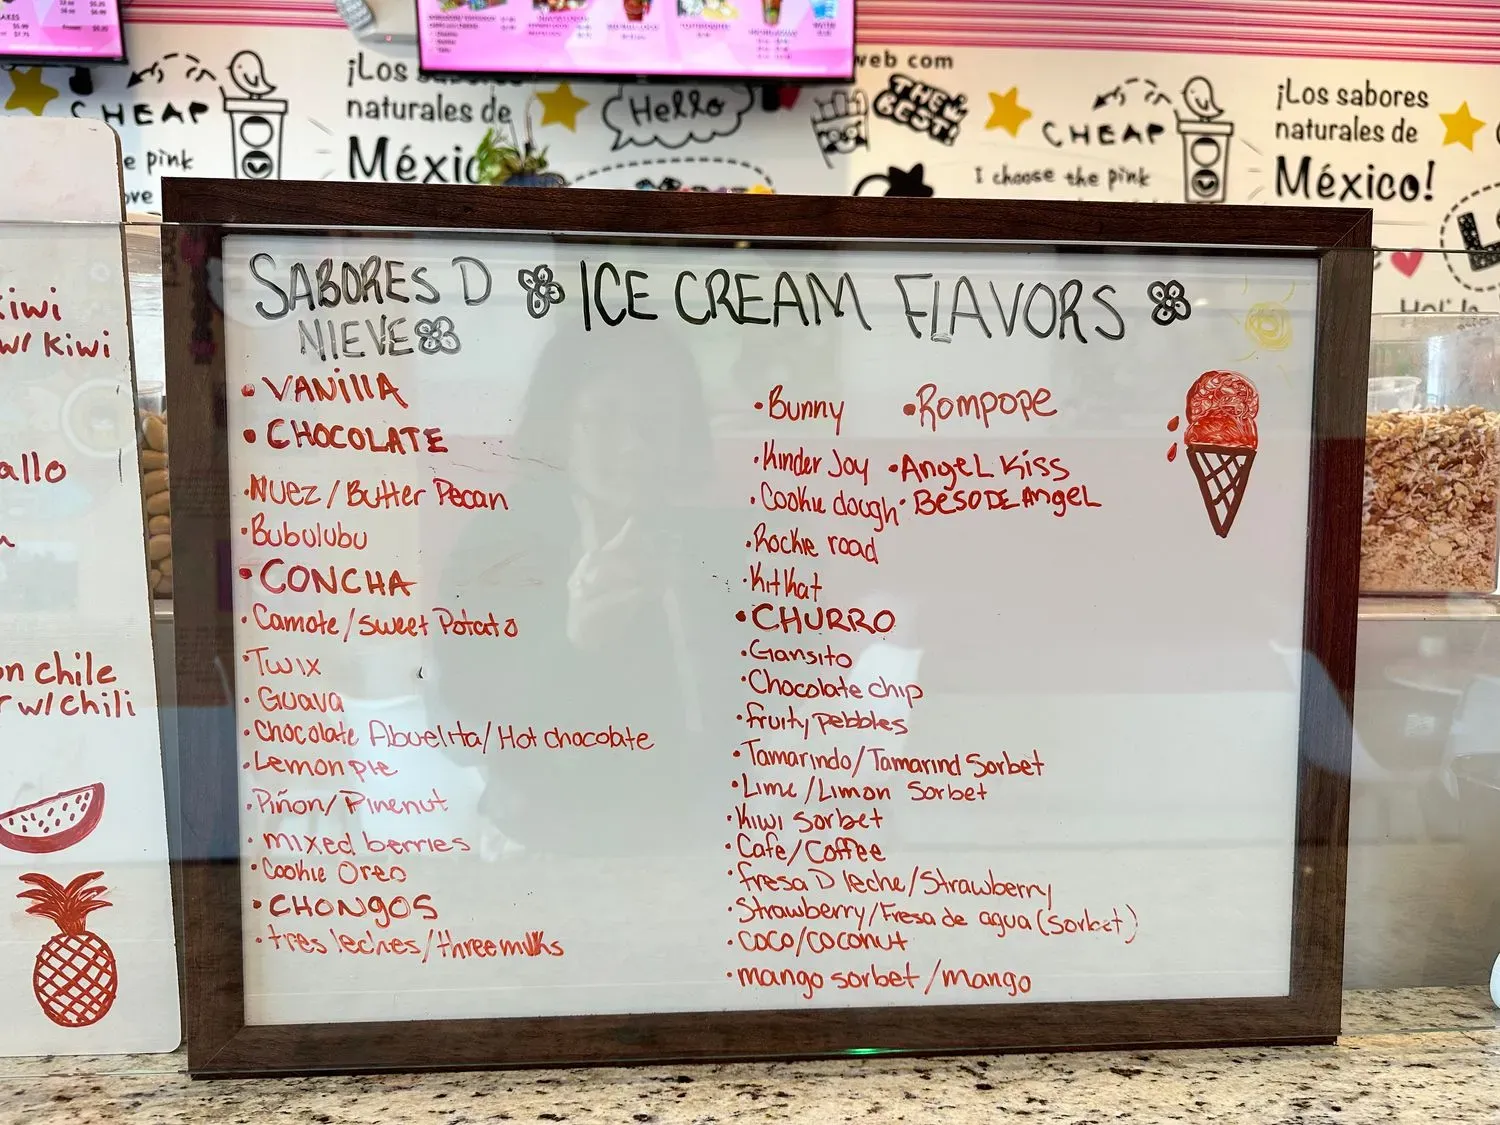 web com
CHEAP
¡Los sabores
naturales de
México
Hello
THE BEST!
CHEAP
I choose the pink
¡Los sabores
naturales de
México!
e the pink
Kiwi
w/ Kiwi
allo
on chile
r w/chili
SABORES D
NIEVE
ICE CREAM FLAVORS
• VANIllA
• CHOCOLATE
• NUEZ / Butter Pecan
• Bubulubu
• CONCHA
• Camote / Sweet Potato
• Twix
• Guava
• Chocolate Abuelita / Hot chocolate
• Lemon pie
• Piñon / Pinenut
• mixed berries
• Cookie Oreo
• CHONgOS
• tres leches / three milks
• Bunny • Rompope
• Kinder Joy • Angel Kiss
• Cookie dough • BESO DE Angel
• Rockie road
• KitKat
• CHURRO
• Gansito
• Chocolate chip
• fruity pebbles
• Tamarindo / Tamarind Sorbet
• Lime / Limon Sorbet
• Kiwi sorbet
• Cafe / Coffee
• fresa D leche / Strawberry
• Strawberry / Fresa de agua (sorbet)
• coco / coconut
• mango sorbet / mango